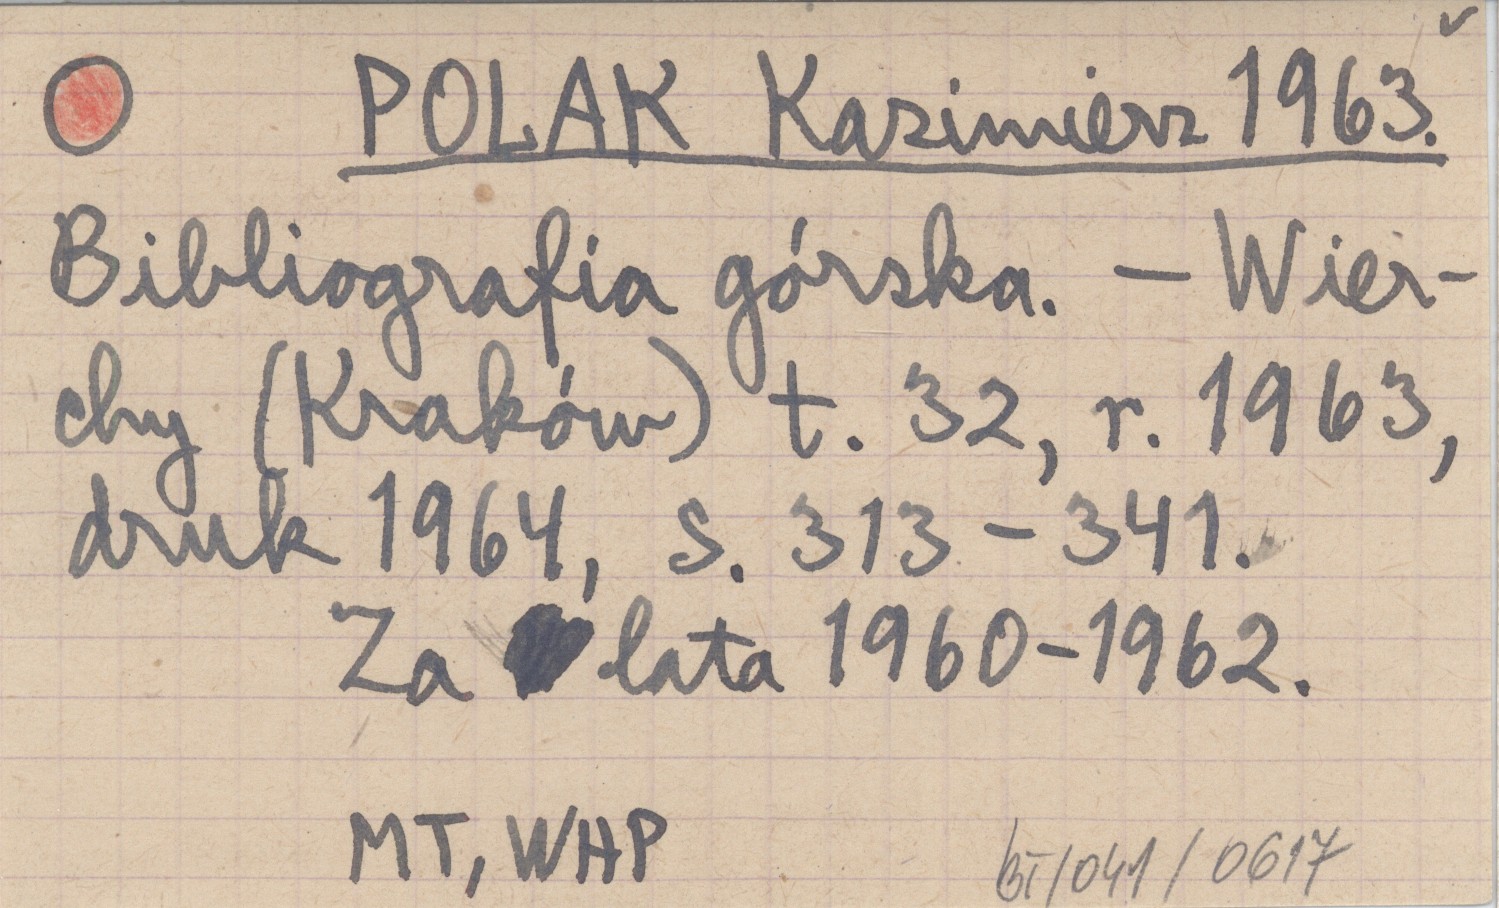 POLAK Kazimierz 1963.
Bibliografia górska. — Wier-
chy (Kraków) t. 32, r. 1963,
druk 1964, s. 313-341.
Za lata 1960-1962.
MT, WHP
BT/041/0617